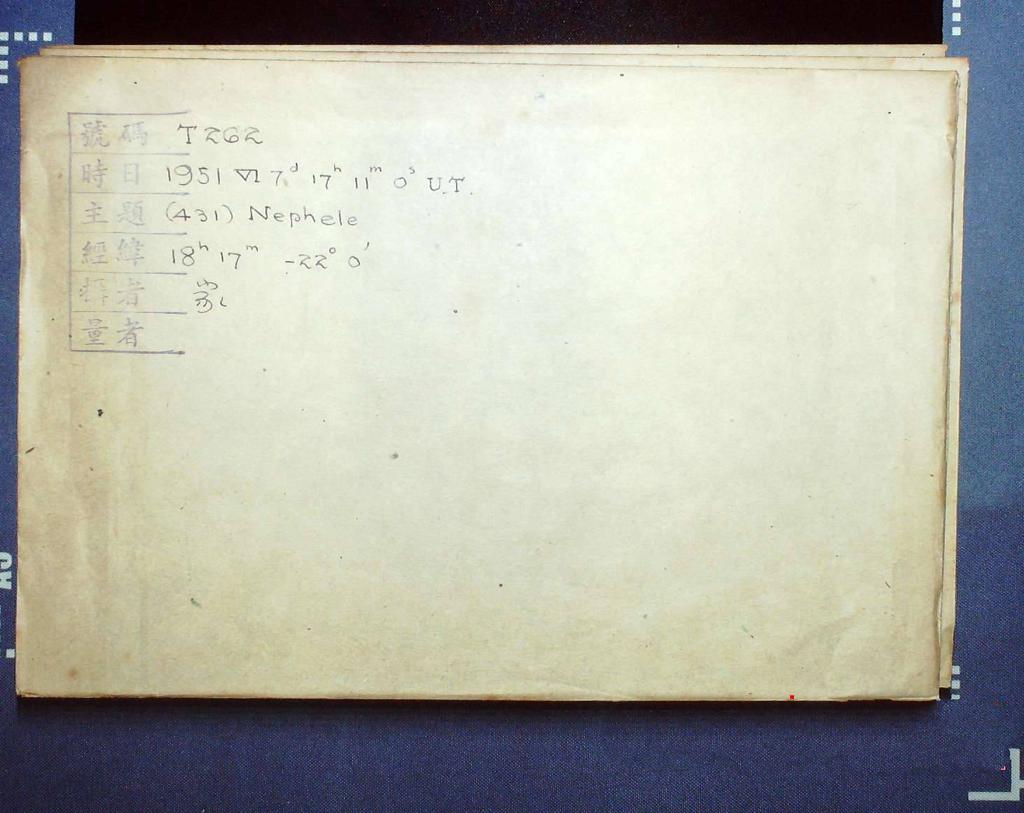 號碼 T262
時日 1951 VI 7.ᵈ 17ʰ 11ᵐ 0ˢ U.T.
主題 (431) Nephele
經緯 18ʰ 17ᵐ -22° 0′
量者